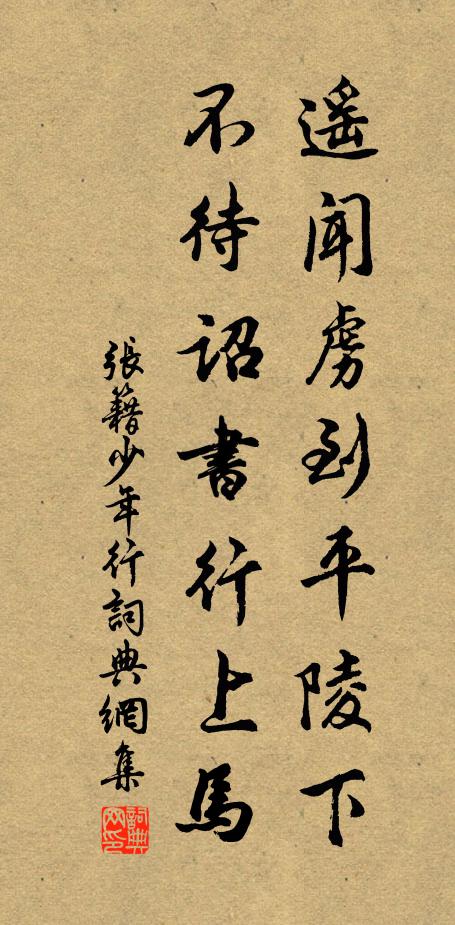 遥闻虏到平陵下
不待诏書行上馬
張籍少年行詞典網集
詞典网印